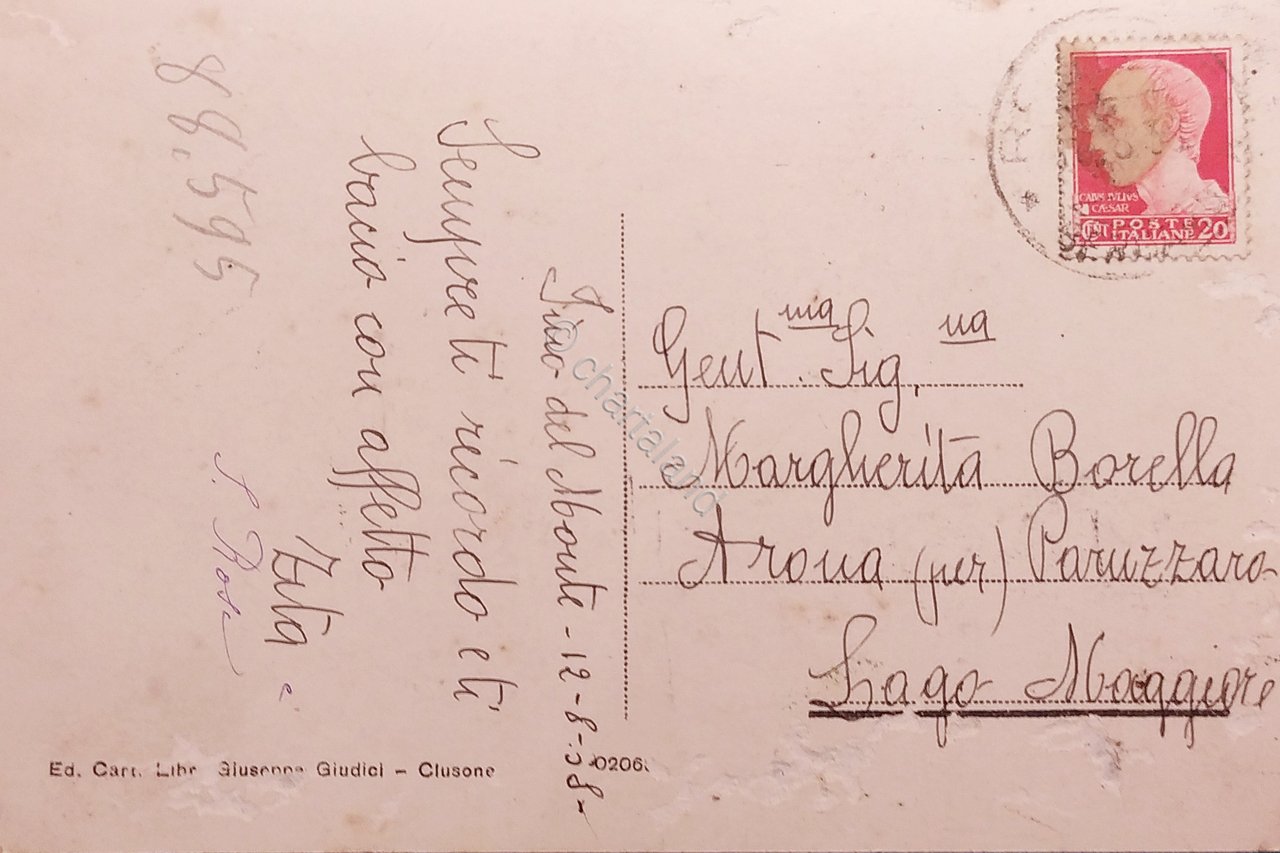 del Monte - 12-8-38-
Sempre ti ricordo e ti
bacio con affetto
Zita e
S. Rosa
88.595
Gent.ma Sig.na
Margherita Borella
Arona (per) Paruzzaro
Lago Maggiore
CAIVS IVLIVS
CÆSAR
POSTE
ITALIANE 20
Ed. Cart. Libr. Giuseppe Giudici - Clusone
© chartaland